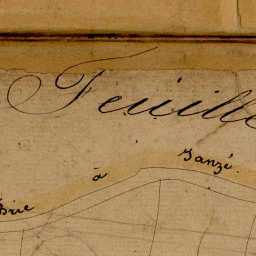 Feuille
Brie à Janzé.